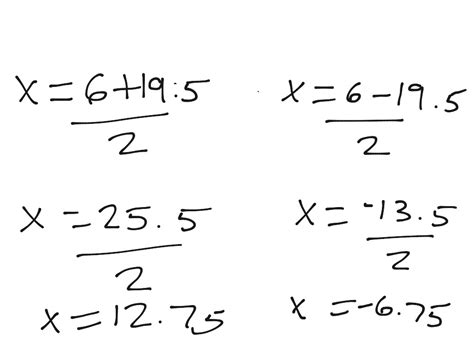 x = 6+19.5
2
x = 25.5
2
x = 12.75
x = 6-19.5
2
x = -13.5
2
x = -6.75